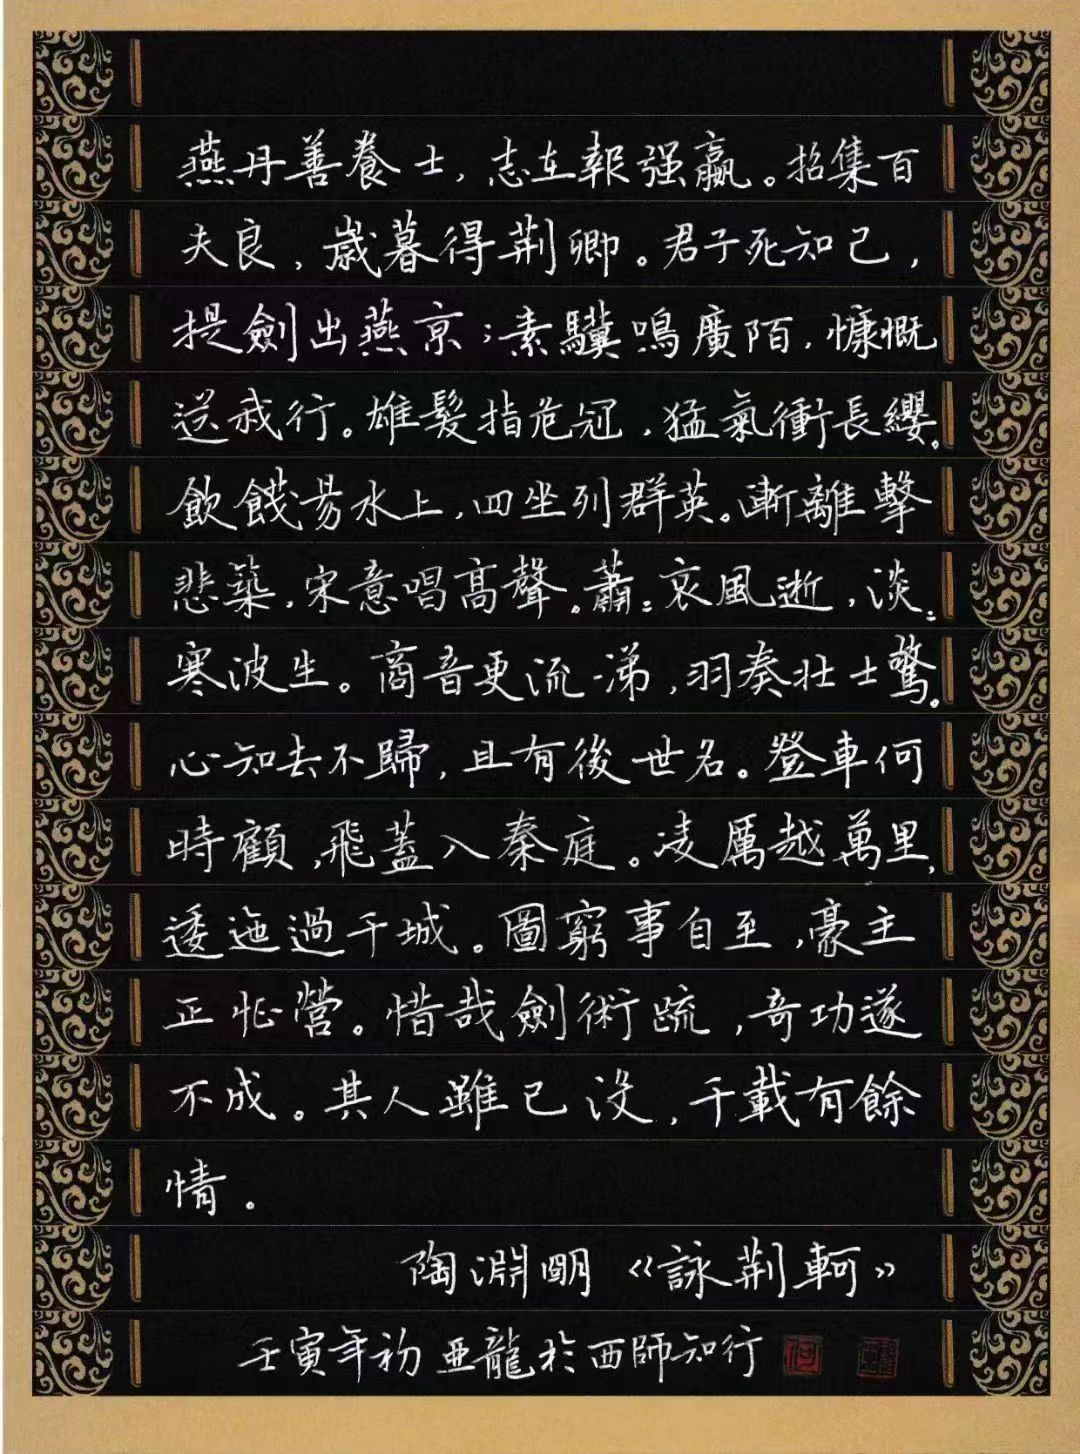 燕丹善養士，志在報强嬴。招集百
夫良，歲暮得荆卿。君子死知己，
提劍出燕京；素驥鳴廣陌，慷慨
送我行。雄髮指危冠，猛氣衝長纓。
飲餞易水上，四坐列群英。漸離擊
悲築，宋意唱高聲。蕭：哀風逝，淡：
寒波生。商音更流涕，羽奏壯士驚。
心知去不歸，且有後世名。登車何
時顧，飛蓋入秦庭。凌厲越萬里，
逶迤過千城。圖窮事自至，豪主
正怔營。惜哉劍術疏，奇功遂
不成。其人雖已没，千載有餘
情。
陶淵明《詠荆軻》
壬寅年初 亞龍於西師知行
何
亞龍